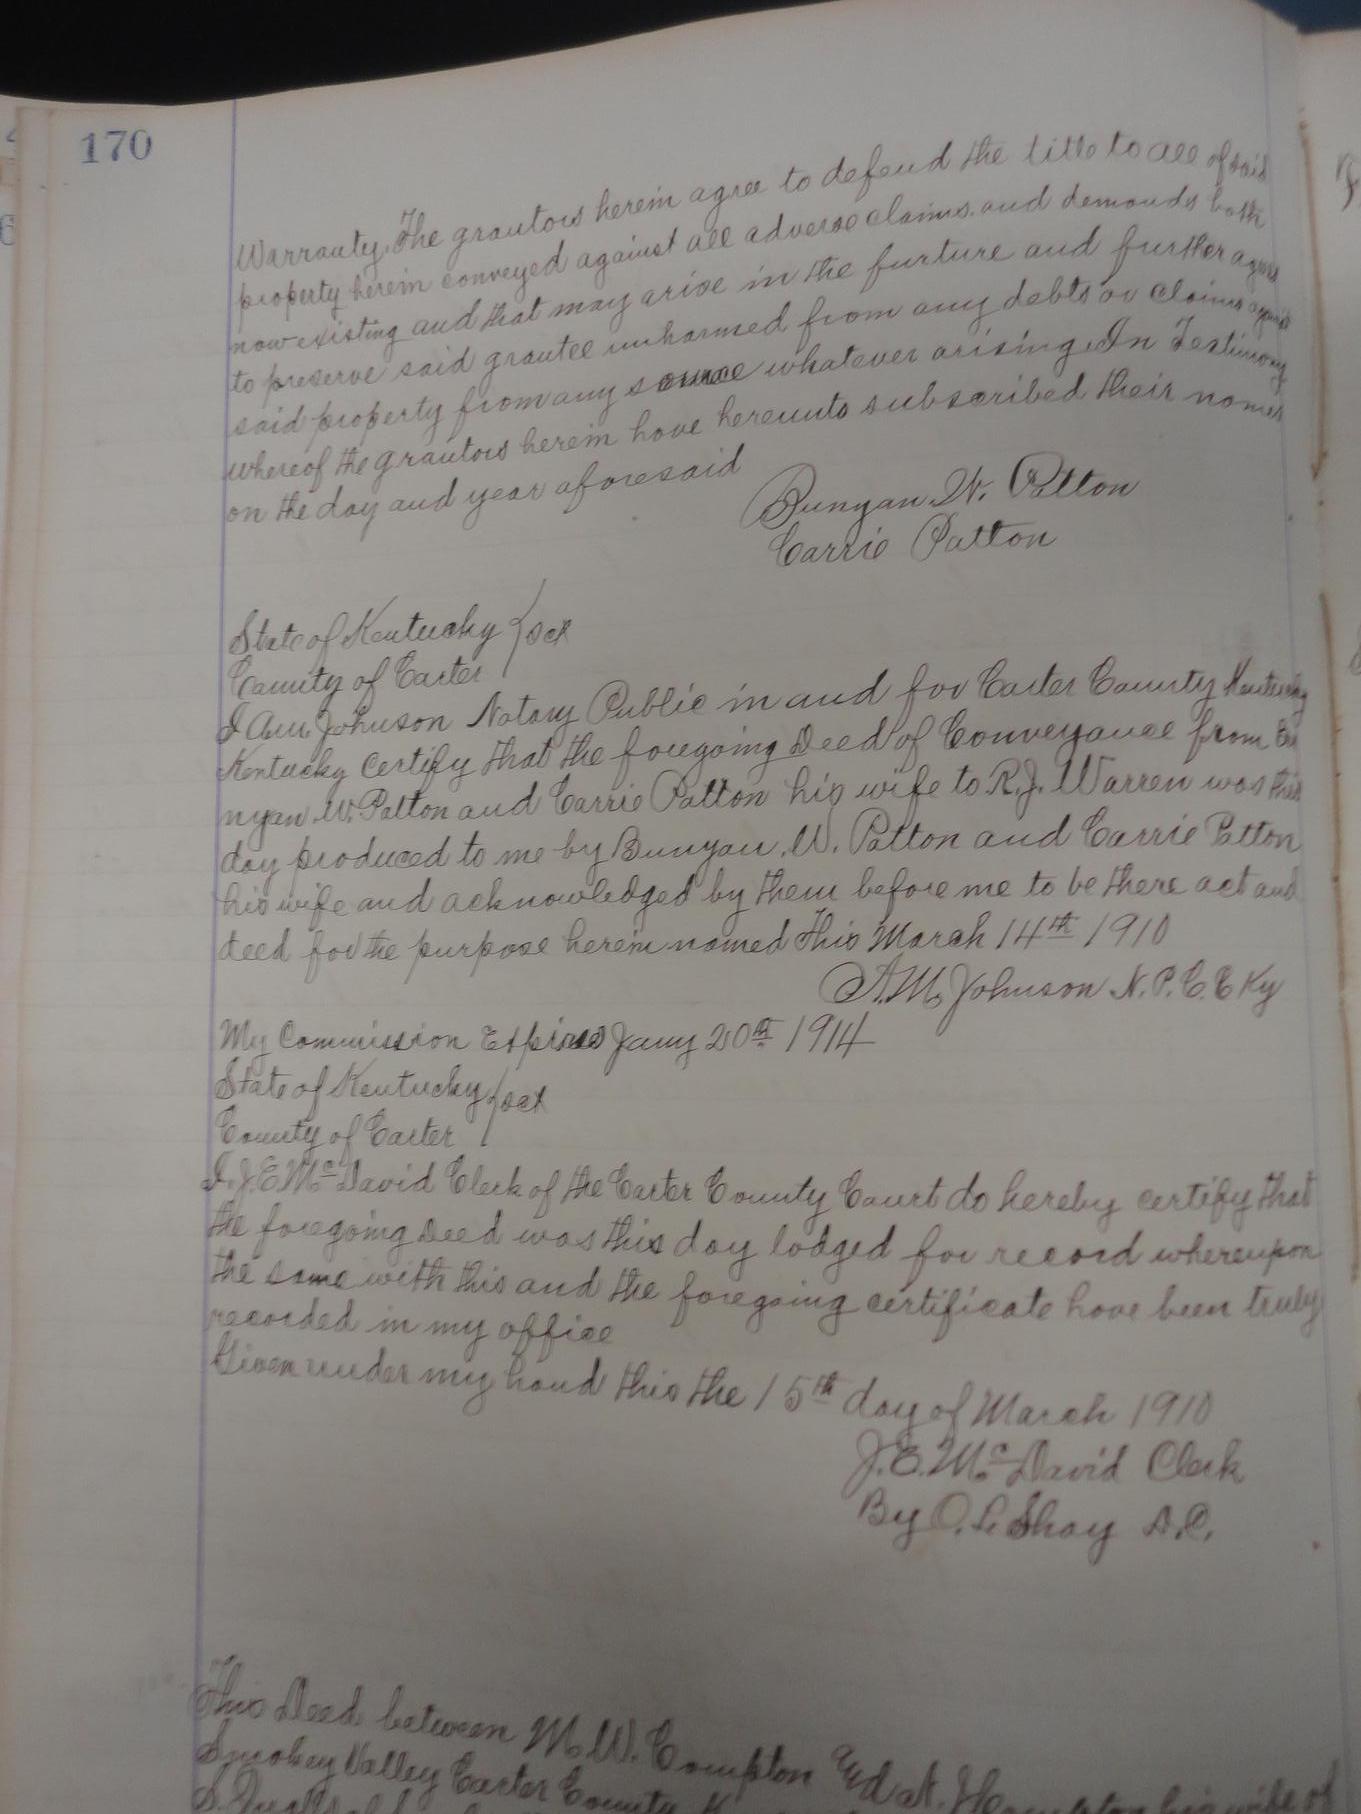 170
Warranty. The grantors herein agree to defend the title to all of said
property herein conveyed against all adverse claims and demands both
now existing and that may arise in the furture and further agree
to preserve said grantee unharmed from any debts or claims against
said property from any source whatever arising. In Testimony
whereof the grantors herein have hereunto subscribed their names
on the day and year aforesaid
Bunyan W. Patton
Carrie Patton
State of Kentucky } sct
County of Carter
I Johnson Notary Public in and for Carter County Kentucky
Kentucky certify that the foregoing Deed of Conveyance from Bu
nyan W. Patton and Carrie Patton his wife to R.J. Warren was this
day produced to me by Bunyan W. Patton and Carrie Patton
his wife and acknowledged by them before me to be there act and
deed for the purpose herein named This March 14th 1910
A.M. Johnson N.P.C.C Ky
My Commission Expires Jany 20th 1914
State of Kentucky } sct
County of Carter
I. J.E. McDavid Clerk of the Carter County Court do hereby certify that
the foregoing Deed was this day lodged for record whereupon
the same with this and the foregoing certificate have been truly
recorded in my office
Given under my hand this the 15th day of March 1910
J.E. McDavid Clerk
By O. L. Shay D.C.
This Deed between M.W. Compton
Smokey Valley Carter County his wife of